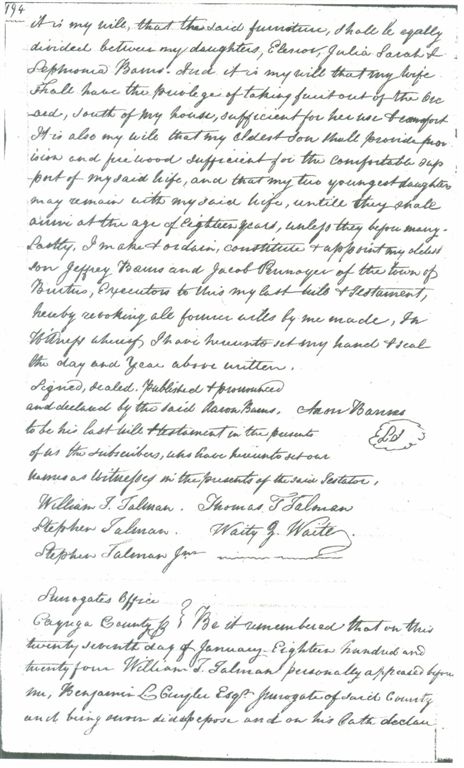 194
it is my will, that the said furniture, shall be eqally
divided between my daughters, Elenor, Julia Sarah &
Sephronia Barns. And it is my will that my wife
shall have the privilege of taking fruit out of the Orc
ard, south of my house, sufficient for her use & comfort
It is also my will that my eldest son shall provide prov
ision and fire wood sufficient for the comfortable sup
port of my said wife, and that my two youngest daughters
may remain with my said wife, untill they shall
arrive at the age of Eighteen years, unless they before marry.
Lastly, I make & ordain, constitute & appoint my eldest
son Jeffrey Barns and Jacob of the town of
Brutus, Executors to this my last will & Testament,
hereby revoking all former wills by me made, In
Witness whereof, I have hereunto set my hand & seal
the day and year above written.
Signed, sealed. Published & pronounced
and declared by the said Aaron Barns. Aaron Barns
to be his last will & testament in the presents
of us the subscribers, who have hereunto set our
names as witnesses in the presents of the said Testator,
William T. Talman. Thomas T Talman
Stephen Talman. Waity Waite
Stephen Talman Jnr
Surrogates Office
Cayuga County } Be it remembered that on this
twenty seventh day of January Eighteen hundred and
twenty four William T. Talman personally appeared before
me, Benjamin L Cuyler Esqr Surrogate of said County
and being sworn did depose and on his oath declare